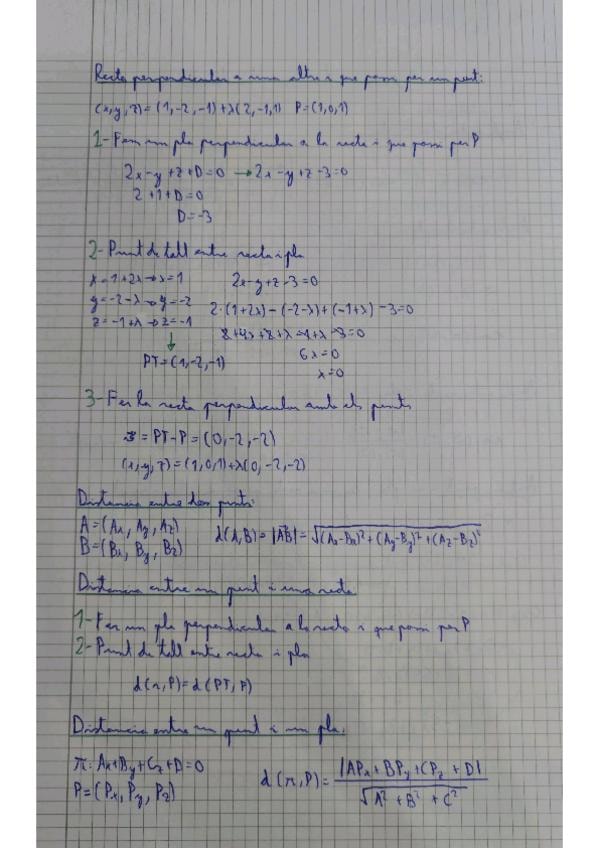 Recta perpendicular a una altra i que passi per un punt:
(x,y,z)=(1,-2,-1)+λ(2,-1,1) P=(1,0,1)
1- Fem un pla perpendicular a la recta i que passi per P
2x-y+z+D=0 → 2x-y+z-3=0
2+1+D=0
D=-3
2- Punt de tall entre recta i pla
x=1+2λ→x=1
y=-2-λ→y=-2
z=-1+λ→z=-1
PT=(1,-2,-1)
2x-y+z-3=0
2·(1+2λ)-(-2-λ)+(-1+λ)-3=0
2+4λ+2+λ-1+λ-3=0
6λ=0
λ=0
3- Fer la recta perpendicular amb els punts
=PT-P=(0,-2,-2)
(x,y,z)=(1,0,1)+λ(0,-2,-2)
Distancia entre dos punts:
A=(Ax, Ay, Az)
B=(Bx, By, Bz)
d(A,B)=|AB|=√(Ax-Bx)²+(Ay-By)²+(Az-Bz)²
Distancia entre un punt i una recta
1- Fer un pla perpendicular a la recta i que passi per P
2- Punt de tall entre recta i pla
d(r,P)=d(PT,P)
Distancia entre un punt i un pla:
π: Ax+By+Cz+D=0
P=(Px, Py, Pz)
d(π,P)=|APx+BPy+CPz+D|/√A²+B²+C²